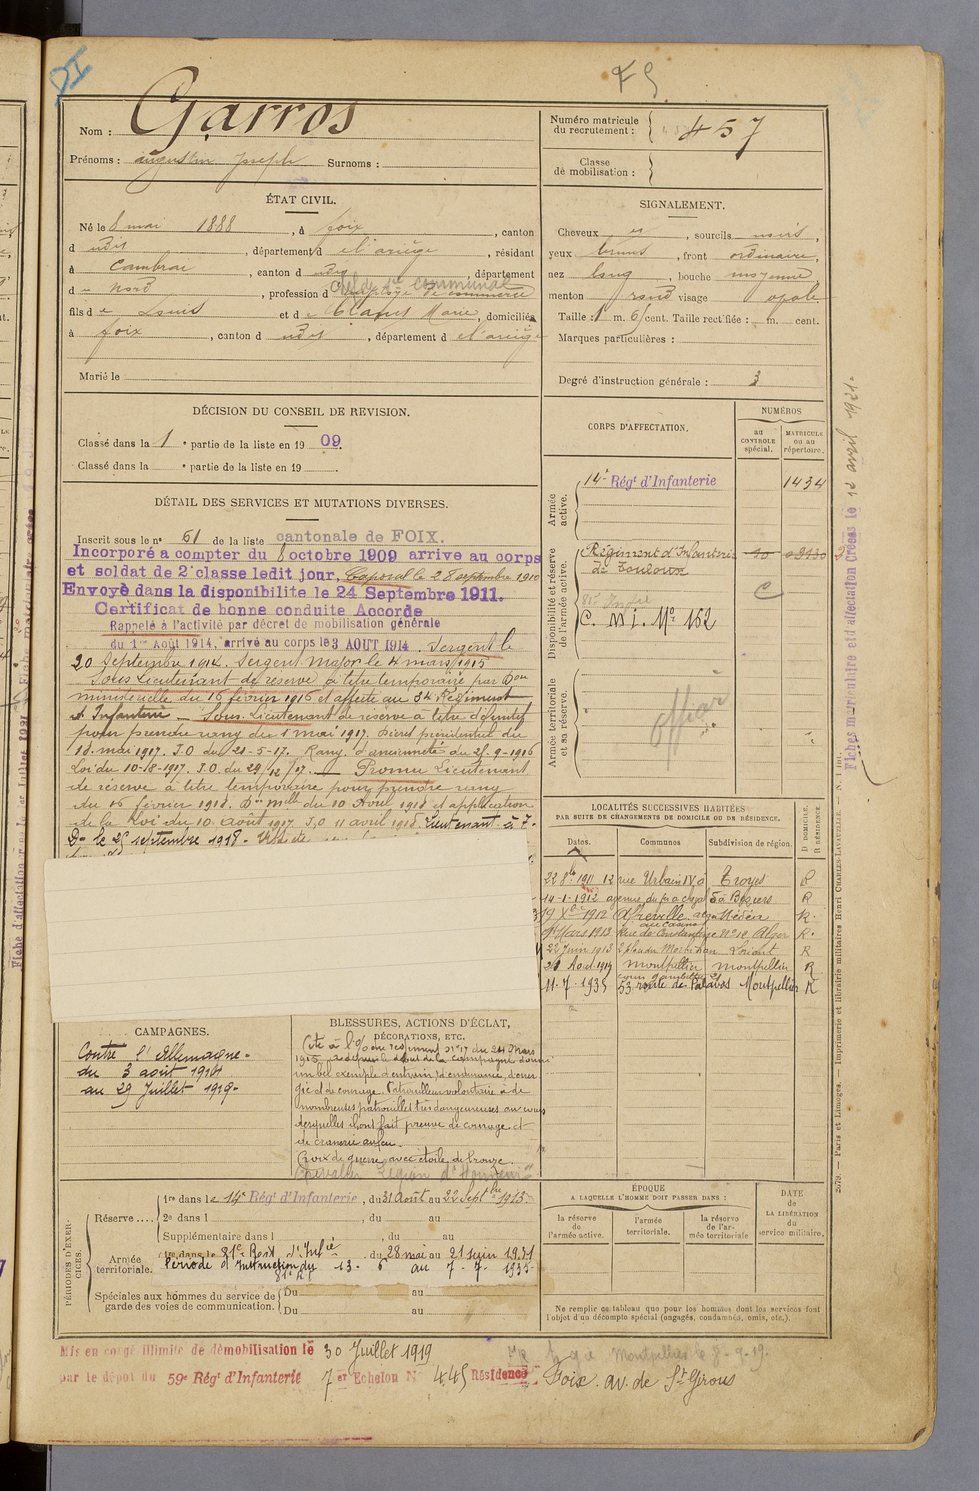 Garros
Nom :
Prénoms : augustin Joseph Surnoms :
Numéro matricule
du recrutement : 457
Classe
de mobilisation :
ÉTAT CIVIL.
Né le 8 mai 1888, à foix, canton
d udit, département d e l'ariège, résidant
à Cambrai, canton d udit, département
d u Nord, profession d employé de commerce
fils d e Louis et d e Marie, domiciliés
à foix, canton d udit, département d e l'ariège
Marié le
SIGNALEMENT.
Cheveux et, sourcils noirs,
yeux bruns, front ordinaire,
nez long, bouche moyenne
menton rond visage ovale
Taille : 1 m. 61 cent. Taille rectifiée : m. cent.
Marques particulières :
Degré d'instruction générale : 3
DÉCISION DU CONSEIL DE REVISION.
Classé dans la 1e partie de la liste en 1909.
Classé dans la e partie de la liste en 19
DÉTAIL DES SERVICES ET MUTATIONS DIVERSES.
Inscrit sous le n° 61 de la liste cantonale de FOIX.
Incorporé a compter du 8 octobre 1909 arrive au corps
et soldat de 2e classe ledit jour, Caporal le 28 septembre 1910
Envoyé dans la disponibilite le 24 Septembre 1911.
Certificat de bonne conduite Accorde
Rappelé à l'activité par décret de mobilisation générale
du 1er Août 1914, arrivé au corps le 3 AOUT 1914. Sergent le
20 Septembre 1914. Sergent Major le 4 mars 1915
Sous Lieutenant de reserve à titre temporaire par Don
ministerielle du 16 février 1916 et affecté au 34 Régiment
d'Infanterie _ Sous Lieutenant de reserve à titre définitif
pour prendre rang du 1 mai 1917. Décret présidentiel du
18 mai 1917. J.O du 21-5-17. Rang d'ancienneté du 25-9-1916
Loi du 10-8-1917. J.O. du 29/12/17. _ Promu Lieutenant
de réserve à titre temporaire pour prendre rang
du 16 février 1918. Don mlle du 10 Avril 1918 et application
de la Loi du 10 août 1917 J.O 11 avril 1918. Lieutenant à T.
D. le 25 septembre 1918.
CORPS D'AFFECTATION.
NUMÉROS
au
CONTROLE
spécial.
MATRICULE
ou au
répertoire.
Armée
active.
14e Régt d'Infanterie 1434
Disponibilité et réserve
de l'armée active.
Régiment d'Infanterie
de Toulouse
C
C. M I. N° 162
Armée territoriale
et sa réserve.
officier
Fiches matriculaire et d'affectation Créées le 12 avril 1921.
LOCALITÉS SUCCESSIVES HABITÉES
PAR SUITE DE CHANGEMENTS DE DOMICILE OU DE RÉSIDENCE.
Dates. Communes Subdivision de région.
D DOMICILE.
R RÉSIDENCE.
22 8bre 1911 12 rue Urbain IV à Troyes
14-1-1912 à Béziers R
19 Xbre 1912 Affreville Médéa R.
Mars 1913 rue de Constantine Alger R.
22 Juin 1913 Lorient R
21 Aout 1919 Montpellier Montpellier R
11-7-1935 53 route de Palavas Montpellier R
CAMPAGNES.
Contre l'Allemagne.
du 3 août 1914
au 29 Juillet 1919.
BLESSURES, ACTIONS D'ÉCLAT,
DÉCORATIONS, ETC.
Cité à l'o/ du régiment n° 17 du 24 Mars
1915, a depuis le début de la campagne donné
un bel exemple d'entrain, d'endurance, d'éner
gie et de courage. Patrouilleur volontaire a de
nombreuses patrouilles très dangereuses au cours
desquelles il ont fait preuve de courage et
de cranerie au feu.
Croix de guerre avec étoile de bronze.
Chevalier Légion d'Honneur
PÉRIODES D'EXER-
CICES.
Réserve....
1re dans le 14e Régt d'Infanterie, du 31 Août au 22 Septbre 1913.
2e dans l , du au
Supplémentaire dans l , du au
Armée
territoriale.
1re dans le 81e Régt d'Infie, du 28 mai au 21 juin 1931
Période d'Instruction du 13-6 au 7-7-1935
81e R.I
Spéciales aux hommes du service de
garde des voies de communication.
Du au
Du au
ÉPOQUE
A LAQUELLE L'HOMME DOIT PASSER DANS :
la réserve
de
l'armée active.
l'armée
territoriale.
la réserve
de l'ar-
mée territoriale
DATE
de
LA LIBÉRATION
du
service militaire.
Ne remplir ce tableau que pour les hommes dont les services font
l'objet d'un décompte spécial (engagés, condamnés, omis, etc.).
2079. — Paris et Limoges. — Imprimerie et librairie militaires Henri CHARLES-LAVAUZELLE.
Mis en congé illimité de démobilisation le 30 Juillet 1919
par le dépôt du 59e Régt d'Infanterie 7er Echelon N° 445 Résidence Foix. av. de St Girons
Montpellier le 8-9-19.